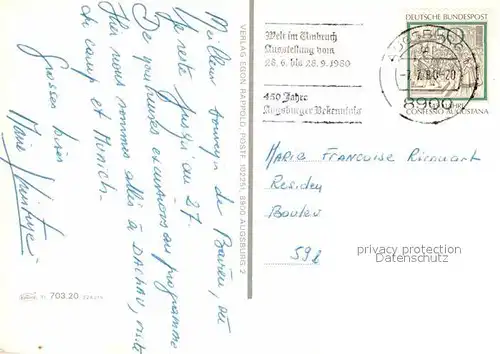 Meilleur souvenir de Bavière, où
je reste jusqu'au 27.
De nombreuses excursions au programme
Hier nous sommes allés à DACHAU, visite
du camp et Munich.
Grosses bises
Marie
VERLAG EGON RAPPOLD, POSTF. 102251, 8900 AUGSBURG 2
703.20
Welt im Umbruch
Ausstellung vom
28.6. bis 28.9.1980
450 Jahre
Augsburger Bekenntnis
AUGSBURG
8900
DEUTSCHE BUNDESPOST
CONFESSIO AUGUSTANA
MARIE FRANCOISE
59
privacy protection
Datenschutz